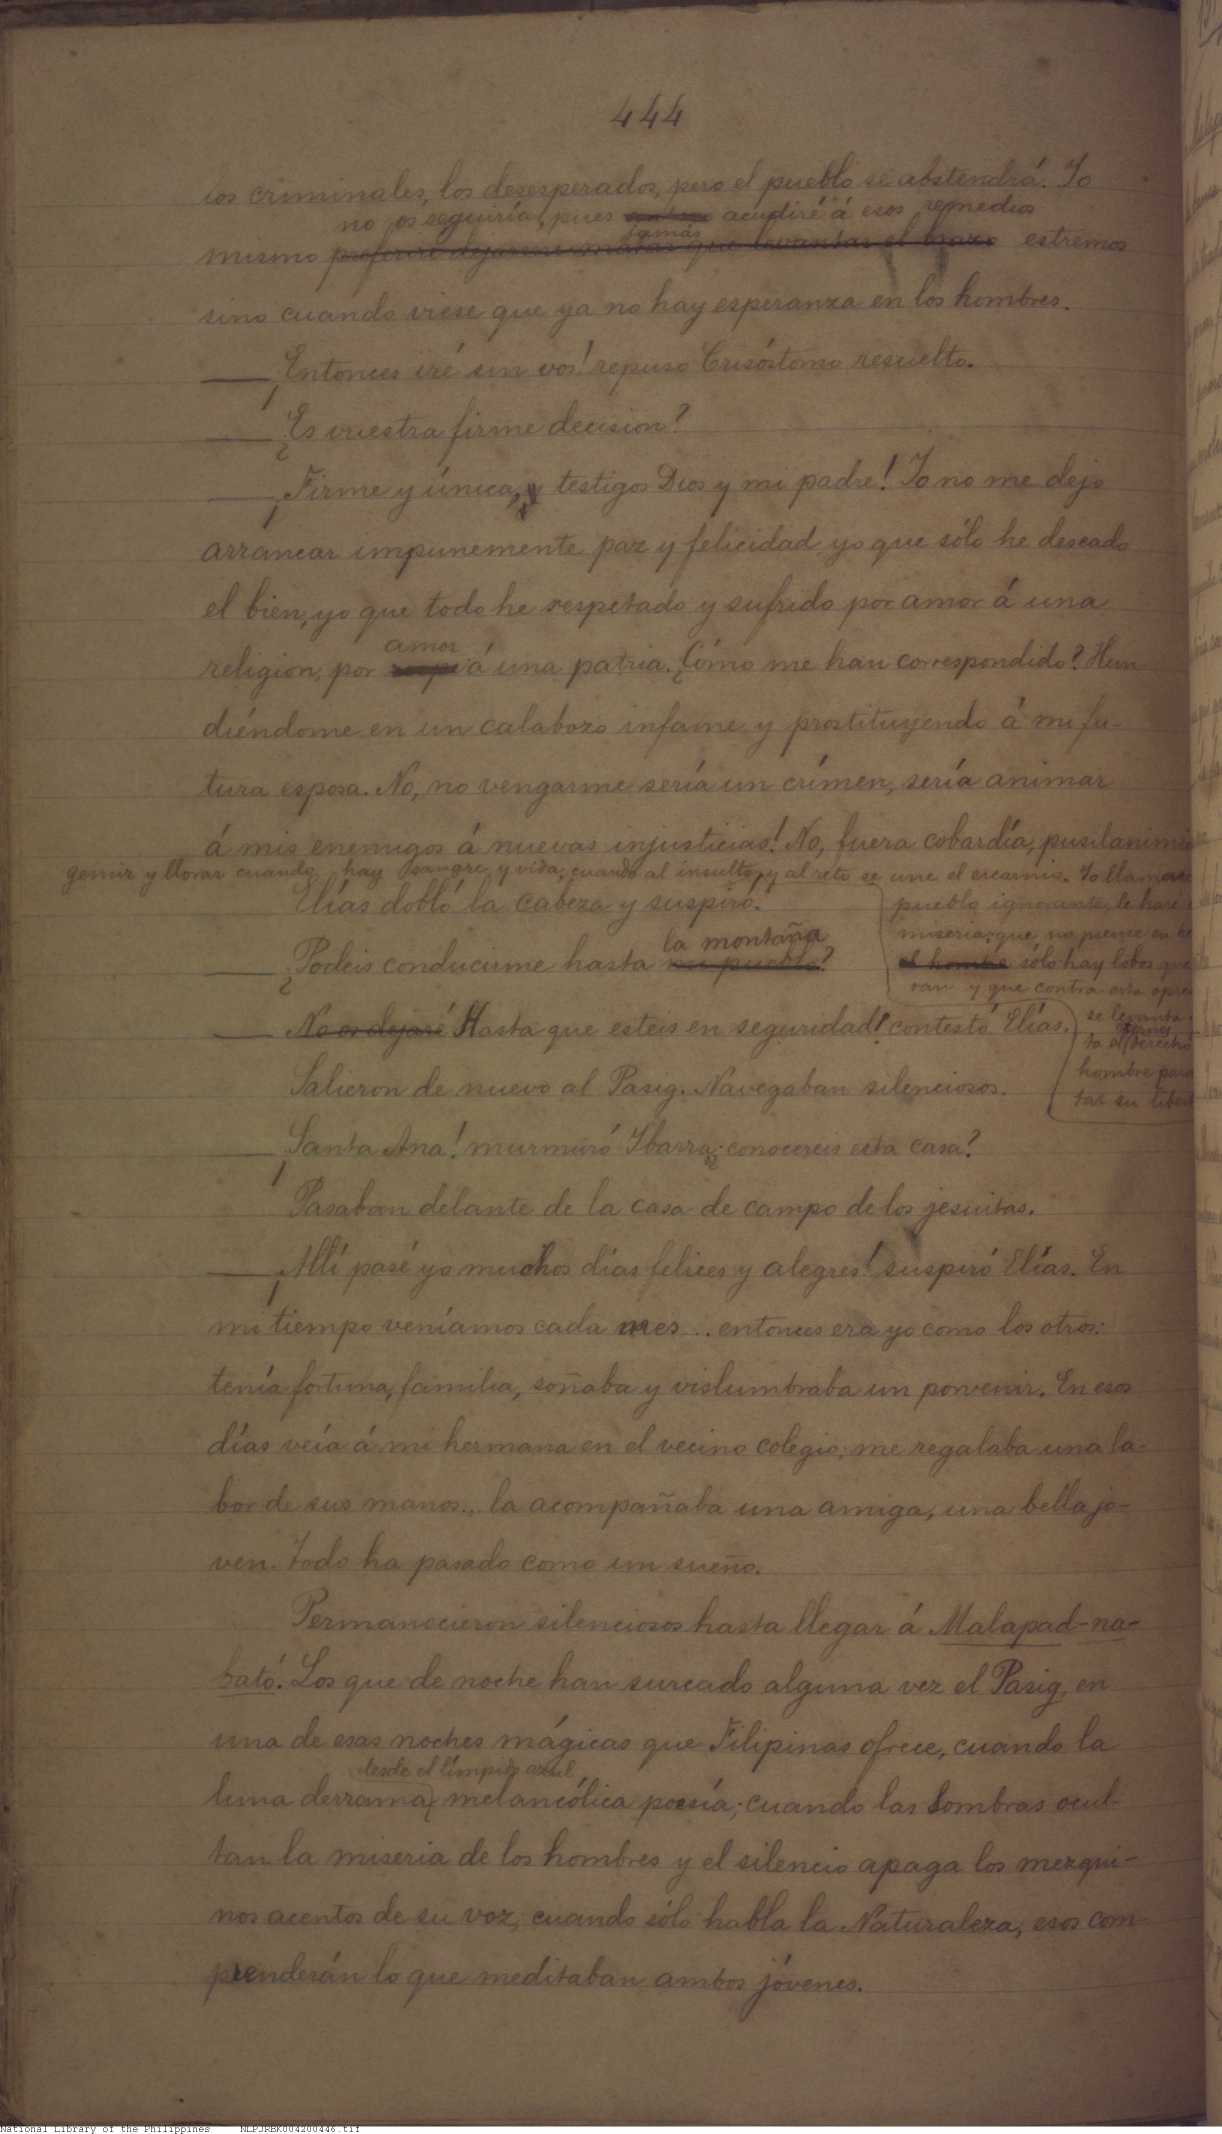 444
los criminales, los desesperados, pero el pueblo se abstendrá. Yo
no os seguiría, pues acudiré á esos remedios
jamás
mismo preferiré dejarme matar que levantar el brazo estremos
sino cuando viese que ya no hay esperanza en los hombres.
— ¡Entonces iré sin vos! repuso Crisóstomo resuelto.
— ¿Es vuestra firme decision?
— ¡Firme y única, testigos Dios y mi padre! Yo no me dejo
arrancar impunemente paz y felicidad yo que sólo he deseado
el bien, yo que todo he respetado y sufrido por amor á una
amor
religion, por á una patria. ¿Cómo me han correspondido? Hun
diéndome en un calabozo infame y prostituyendo á mi fu-
tura esposa. No, no vengarme sería un crímen, sería animar
á mis enemigos á nuevas injusticias! No, fuera cobardía, pusilanimi
gemir y llorar cuando hay sangre y vida, cuando al insulto y al reto se une el escarnio. Yo llamaré
Elías dobló la cabeza y suspiró.
pueblo ignorante, le haré
miseria; que no piense en he
la montaña
— ¿Podeis conducirme hasta mi pueblo?
el hombre sólo hay lobos que
ran y que contra esta opre
— No os dejaré Hasta que esteis en seguridad! contestó Elías.
se levanta
ta el derecho
hombre para
tar su libert
Salieron de nuevo al Pasig. Navegaban silenciosos.
— ¡Santa Ana! murmuró Ibarra; ¿conocereis esta casa?
Pasaban delante de la casa de campo de los jesuitas.
— ¡Allí pasé yo muchos días felices y alegres! suspiró Elías. En
mi tiempo veníamos cada mes... entonces era yo como los otros:
tenía fortuna, familia, soñaba y vislumbraba un porvenir. En esos
días veía á mi hermana en el vecino colegio; me regalaba una la-
bor de sus manos... la acompañaba una amiga, una bella jo-
ven. Todo ha pasado como un sueño.
Permanecieron silenciosos hasta llegar á Malapad-na-
bató. Los que de noche han surcado alguna vez el Pasig, en
una de esas noches mágicas que Filipinas ofrece, cuando la
desde el límpido azul
luna derrama melancólica poesía, cuando las Sombras ocul-
tan la miseria de los hombres y el silencio apaga los mezqui-
nos acentos de su voz, cuando sólo habla la Naturaleza, esos com
prenderán lo que meditaban ambos jóvenes.
National Library of the Philippines NLPJRBK004200446.tif